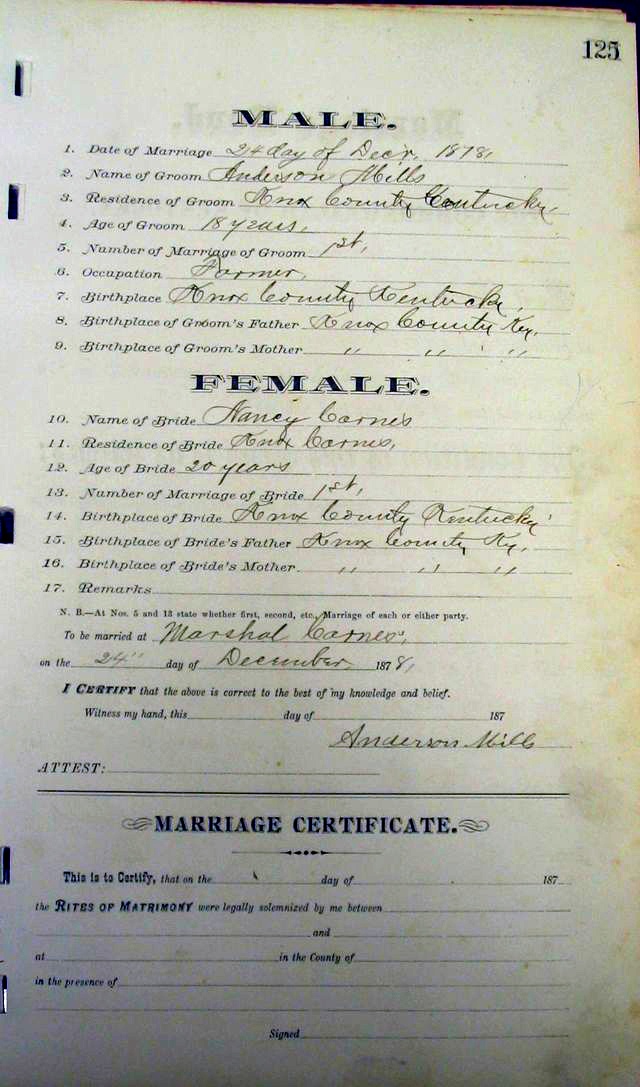 125
MALE.
1. Date of Marriage 24 day of Decr. 1878,
2. Name of Groom Anderson Mills
3. Residence of Groom Knox County Kentucky,
4. Age of Groom 18 years,
5. Number of Marriage of Groom 1st,
6. Occupation Farmer,
7. Birthplace Knox County Kentucky,
8. Birthplace of Groom's Father Knox County Ky,
9. Birthplace of Groom's Mother " " "
FEMALE.
10. Name of Bride Nancy Carnes
11. Residence of Bride Knox Carnes,
12. Age of Bride 20 years
13. Number of Marriage of Bride 1st,
14. Birthplace of Bride Knox County Kentucky
15. Birthplace of Bride's Father Knox County Ky,
16. Birthplace of Bride's Mother " " "
17. Remarks
N. B.—At Nos. 5 and 13 state whether first, second, etc., Marriage of each or either party.
To be married at Marshal Carnes,
on the 24" day of December 1878,
I CERTIFY that the above is correct to the best of my knowledge and belief.
Witness my hand, this day of 187
Anderson Mills
ATTEST:
MARRIAGE CERTIFICATE.
This is to Certify, that on the day of 187
the RITES OF MATRIMONY were legally solemnized by me between
and
at in the County of
in the presence of
Signed